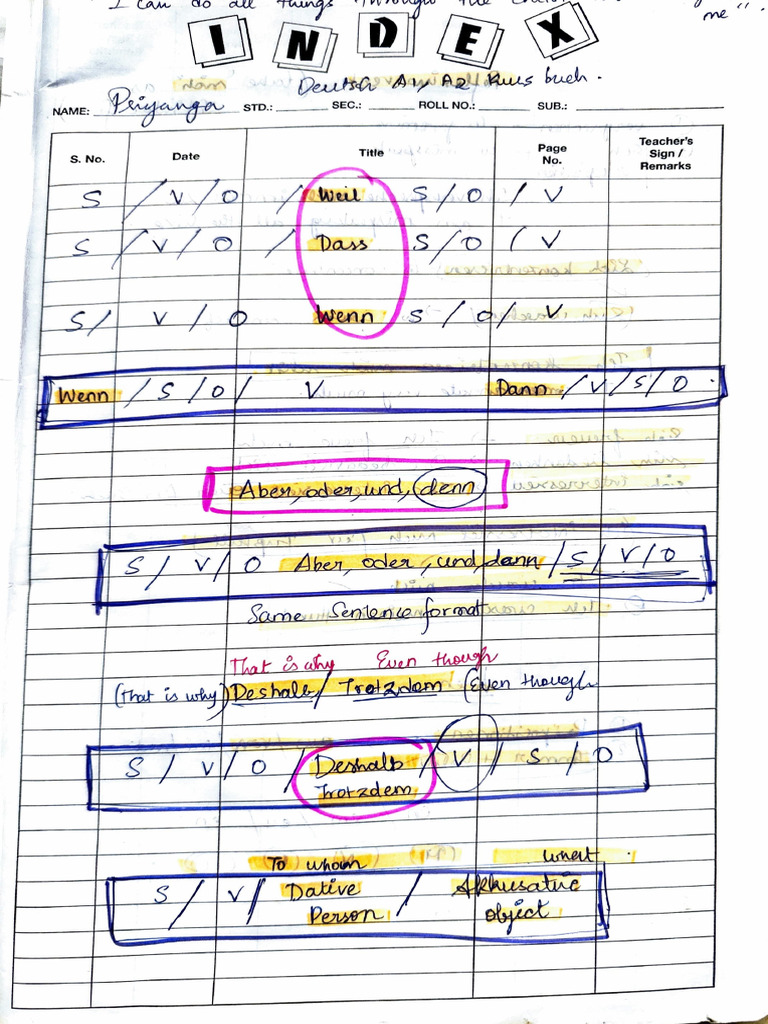 I can do all things through the
me".
INDEX
Deutsch A1, A2 Kurs buch.
NAME: Priyanga STD.: SEC.: ROLL NO.: SUB.:
S. No. Date Title Page No. Teacher's Sign / Remarks
S / V / O / Weil S / O / V
S / V / O / Dass S / O / V
S / V / O Wenn S / O / V
Wenn / S / O / V Dann / V / S / O
Aber, oder, und, denn
S / V / O Aber, oder, und, denn / S / V / O
Same Sentence format
That is why Even though
(That is why) Deshalb / Trotzdem (Even though
S / V / O / Deshalb / V / S / O
Trotzdem
(To) whom what
S / V / Dative / Akkusative
Person object